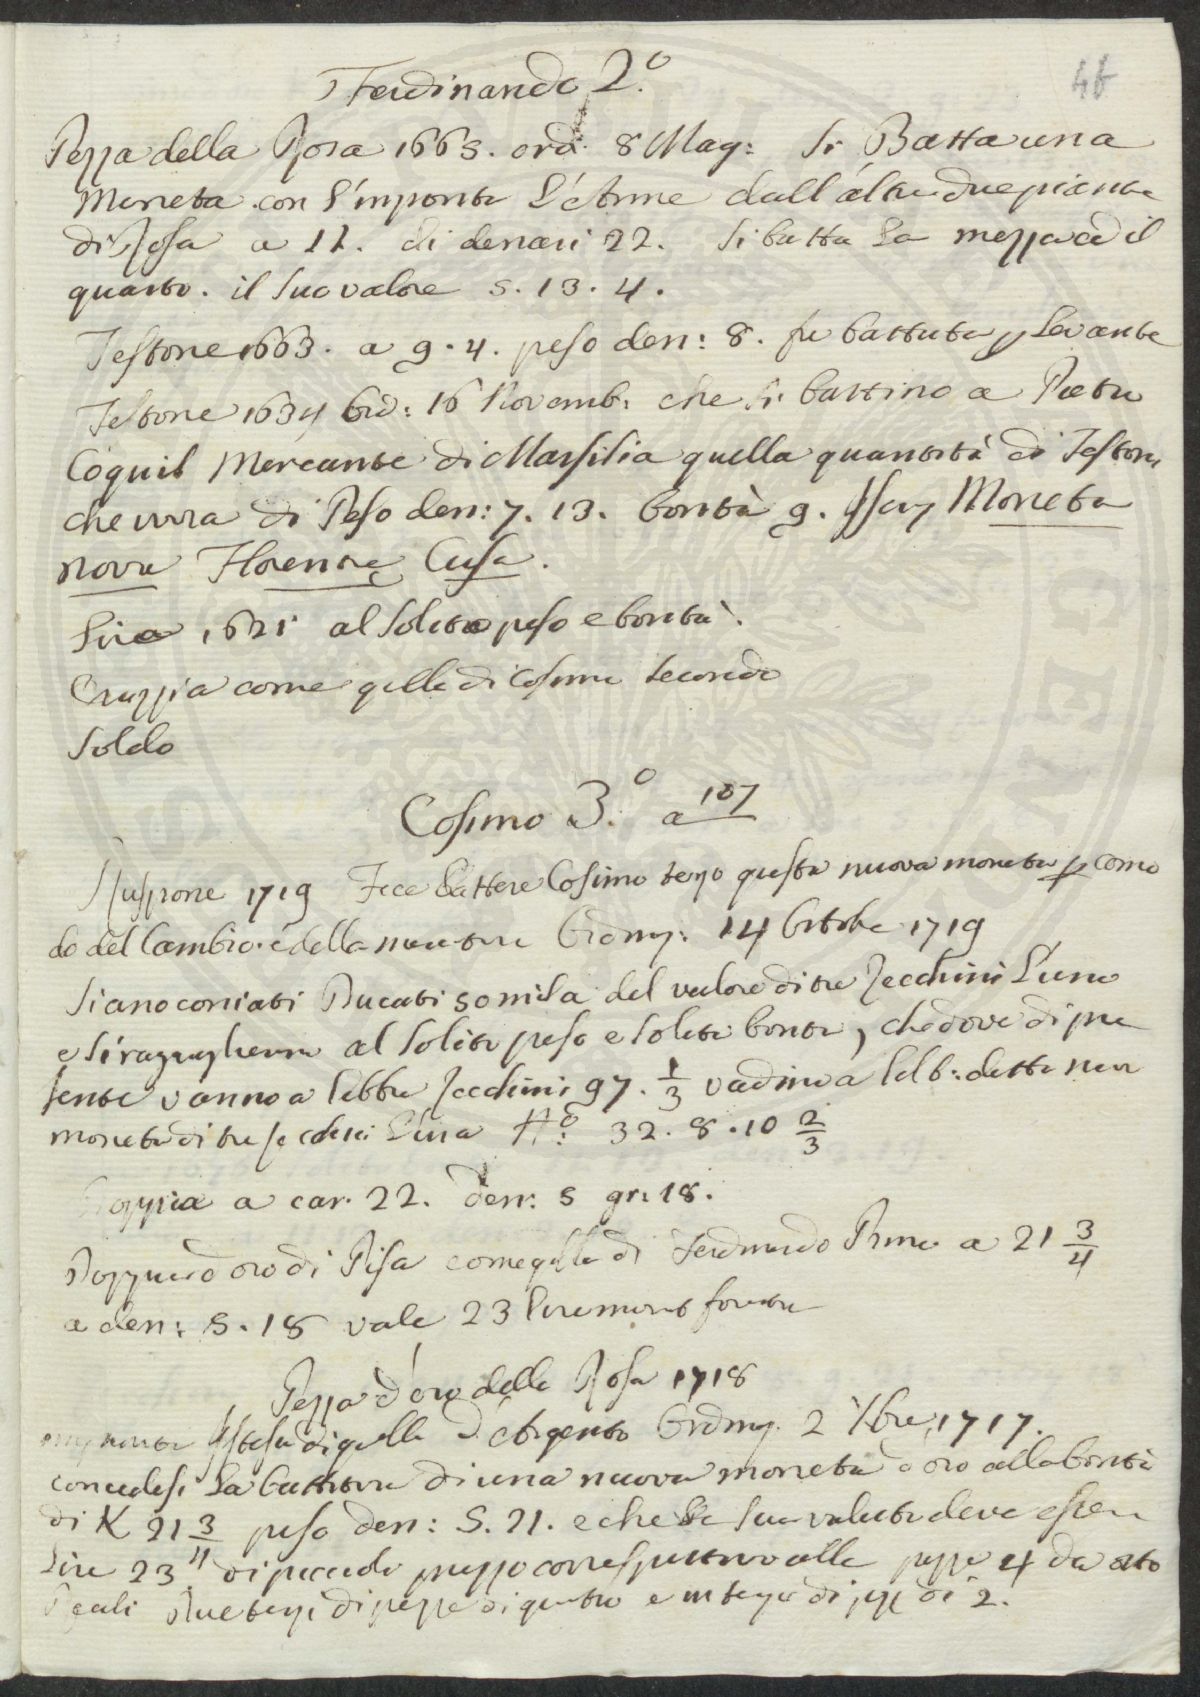 Ferdinando 2.º
46
Pezza della Rosa 1665. ord. 8 Mag: Si Batta una
Moneta con l'impronta L'Arme dall'altra due piante
di Rosa a 11. di denari 22. Si batta la mezza ed il
quarto. il suo valore s. 13. 4.
Testone 1663. a 9. 4. peso den: 8. fu battuta p Levante
Testone 1634 Ord: 16 Novemb: che si battino a Pietro
Coquil Mercante di Marsilia quella quantità di Testoni
che vorra di Peso den: 7. 13. bontà 9. Moneta
nova Florentię Cusa.
Lira 1621 al solito peso e bontà.
Crazzia come qlla di Cosimo secondo
Soldo
Cosimo 3.º a 107
Ruspone 1719 Fece battere Cosimo terzo questa nuova moneta p como
do del Cambio e della 14 Ottobe 1719
Siano coniati Ducati 50 mila del valore di tre Zecchini l'uno
e si al solito peso e solita bontà, che dove di pre
sente vanno a libbra Zecchini 97. 1/3 vadino a lelb: detta nuo
moneta di tre Zecchini L'una Nº: 32. 8. 10 2/3
Doppia a car. 22. den: 5 gr: 18.
Doppia d'oro di Pisa come qlla di Ferdinando Primo a 21 3/4
a den: 5. 18 vale 23 lire
Pezza d'oro della Rosa 1718
Istesa di qlla d'Argento 2 1717.
concedesi la battitura di una nuova moneta d'oro alla bontà
di K 21 3/4 peso den: 5. 21. e che la sua valuta deve essere
Lire 23 di piccioli prezzo corrispettivo alle pezze 4 da otto
Reali Due terzi di pezze di quatro e un terzo di pezz di 2.